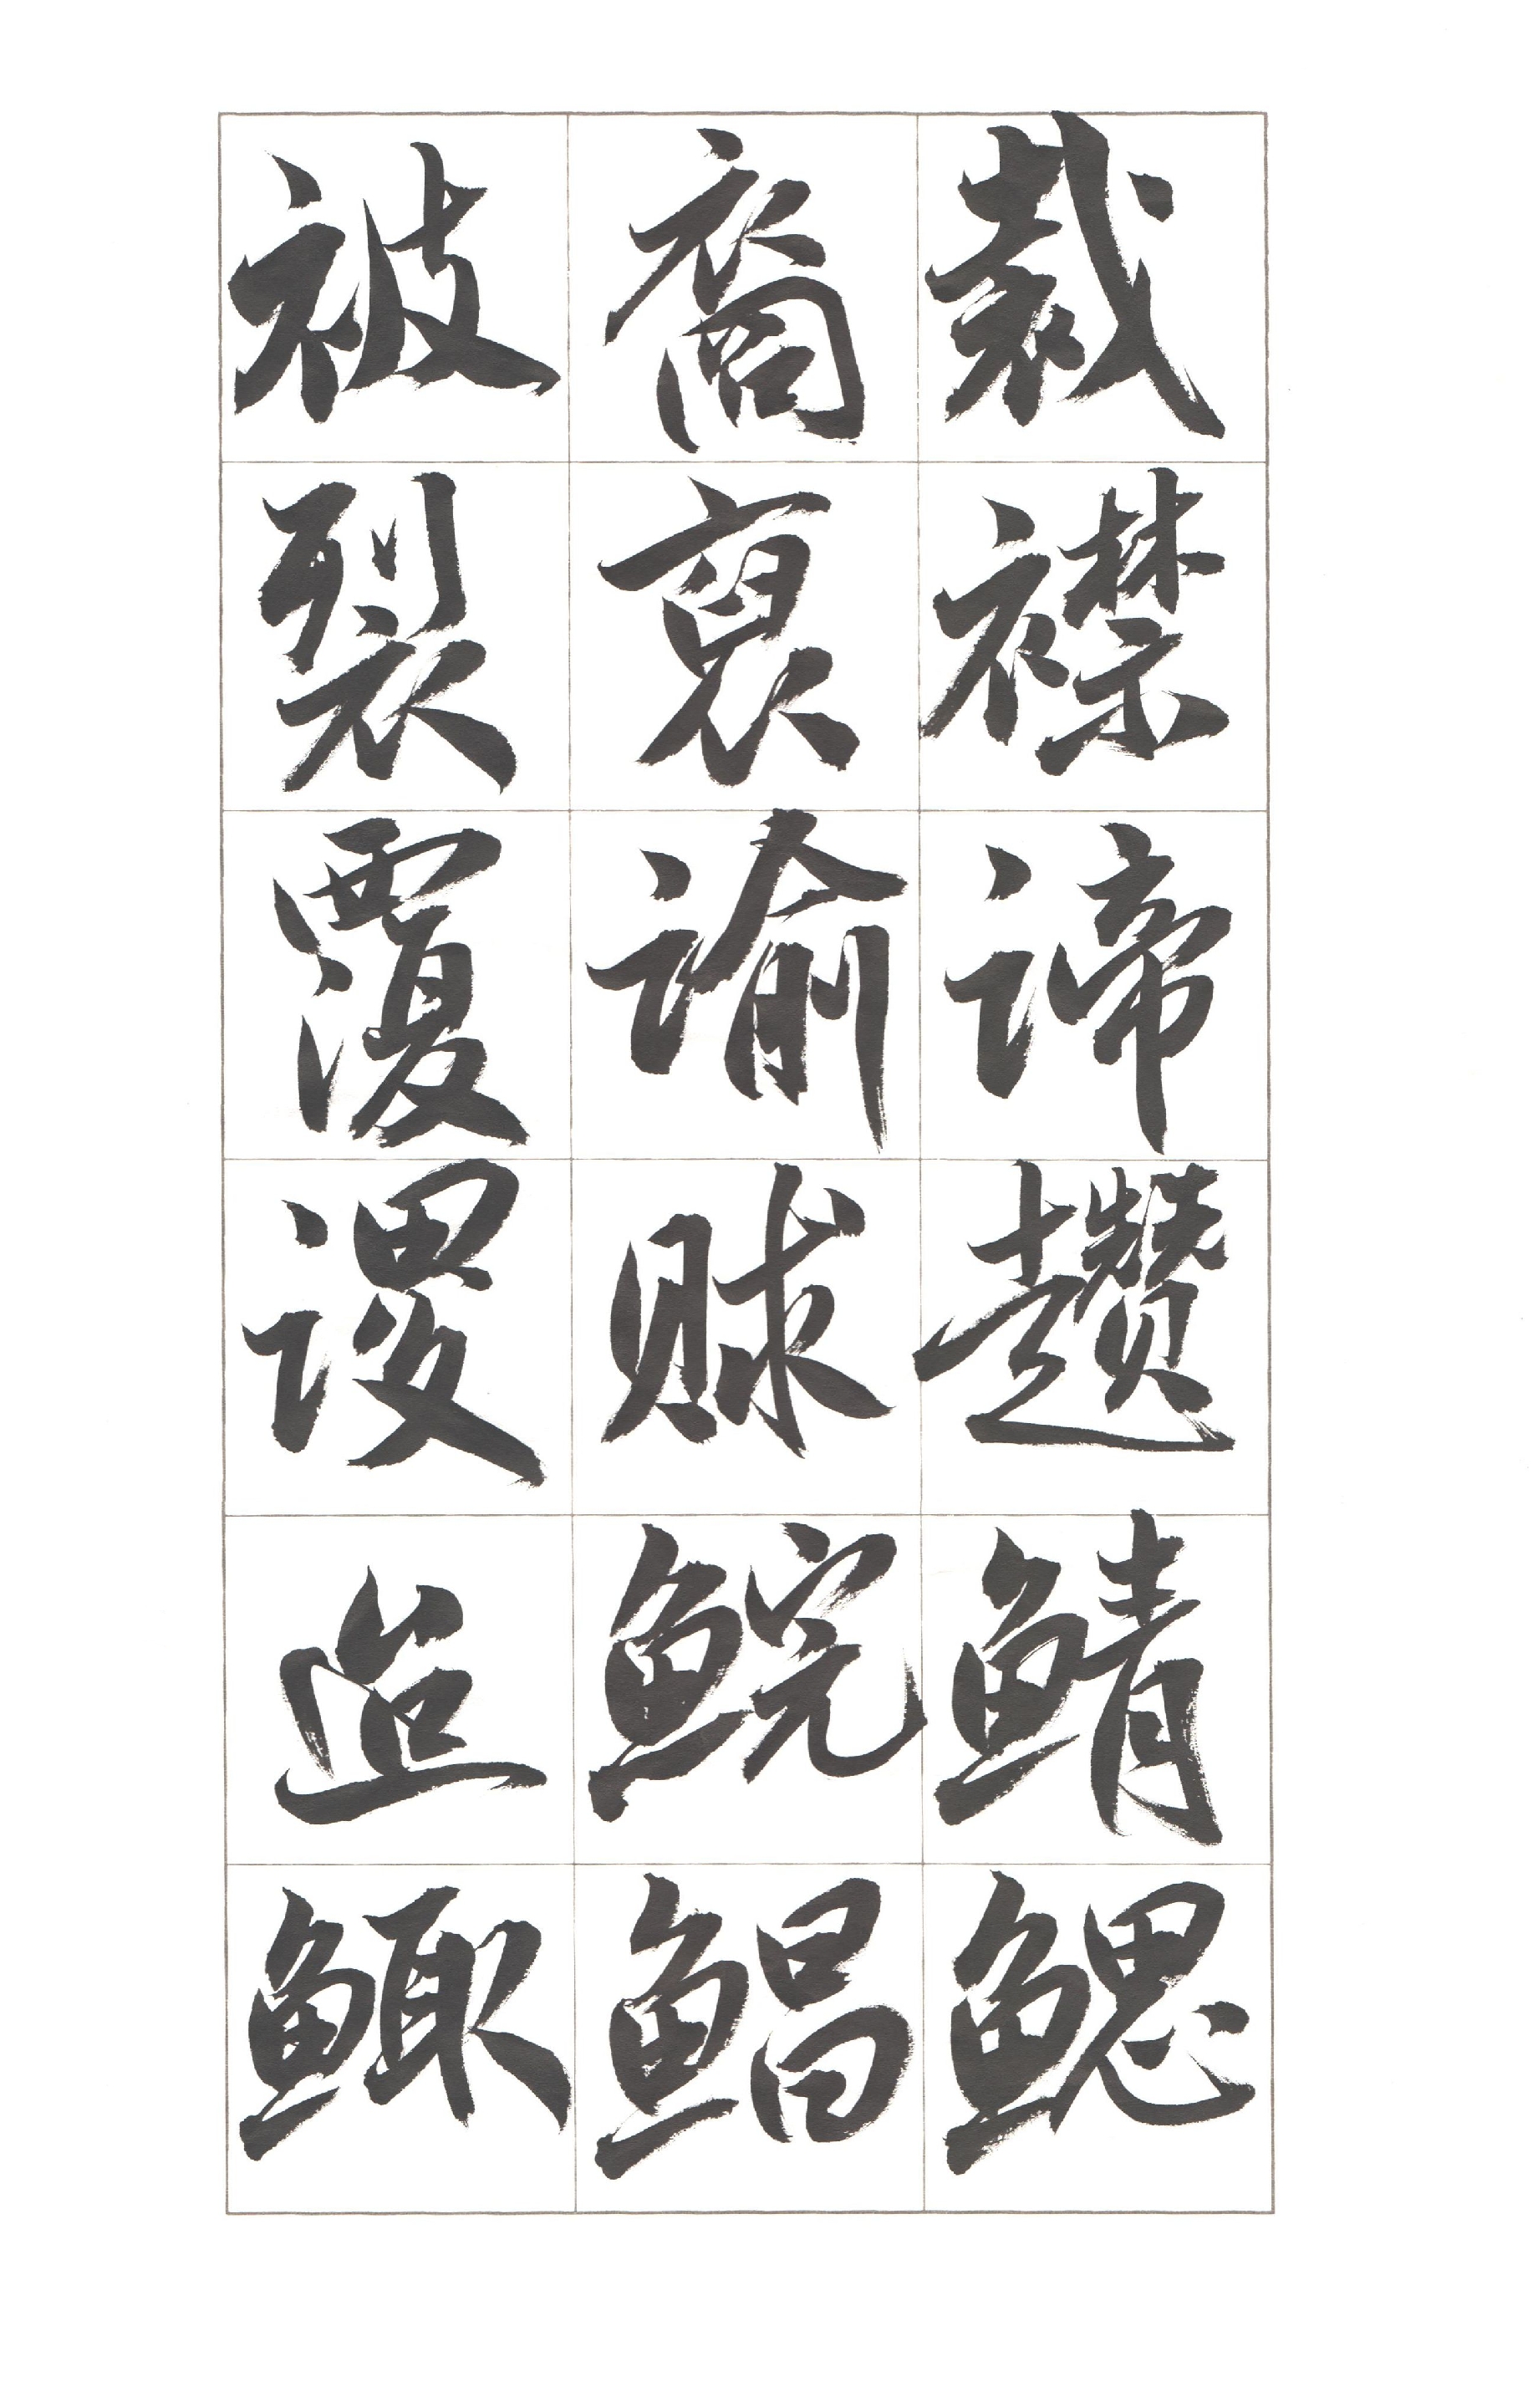 裁襟谛趱鲭鳃
裔裒谕赇鲩鲳
被裂覆谡造鲰